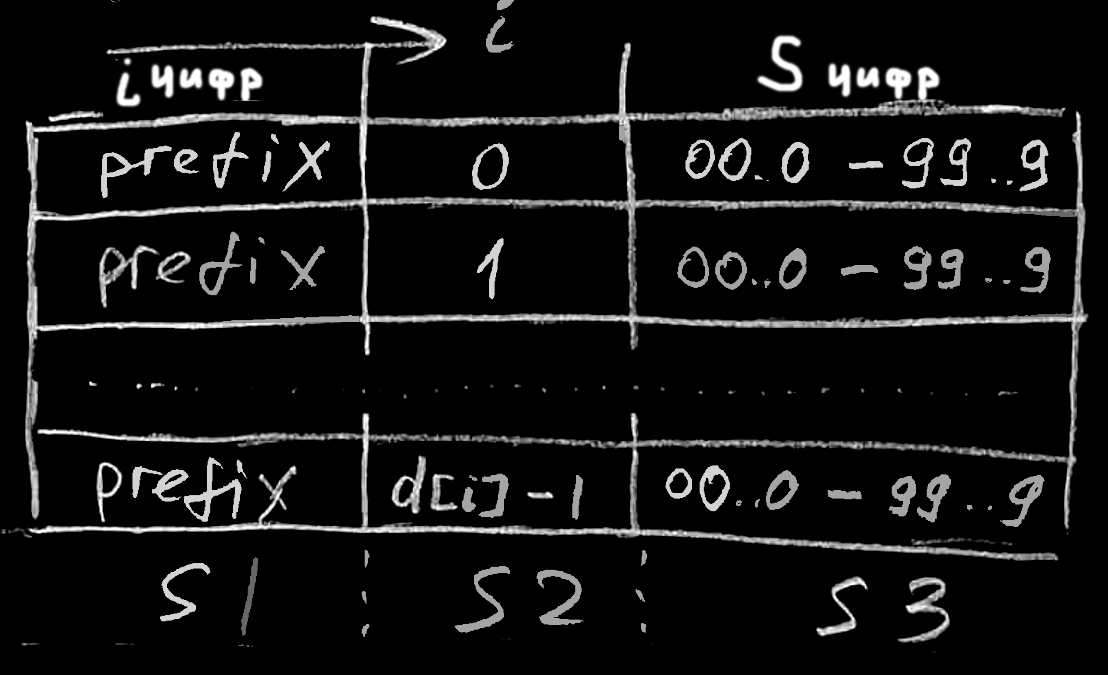 i
i цифр S цифр
prefix 0 00..0 - 99..9
prefix 1 00..0 - 99..9
prefix d[i]-1 00..0 - 99..9
S1 S2 S3